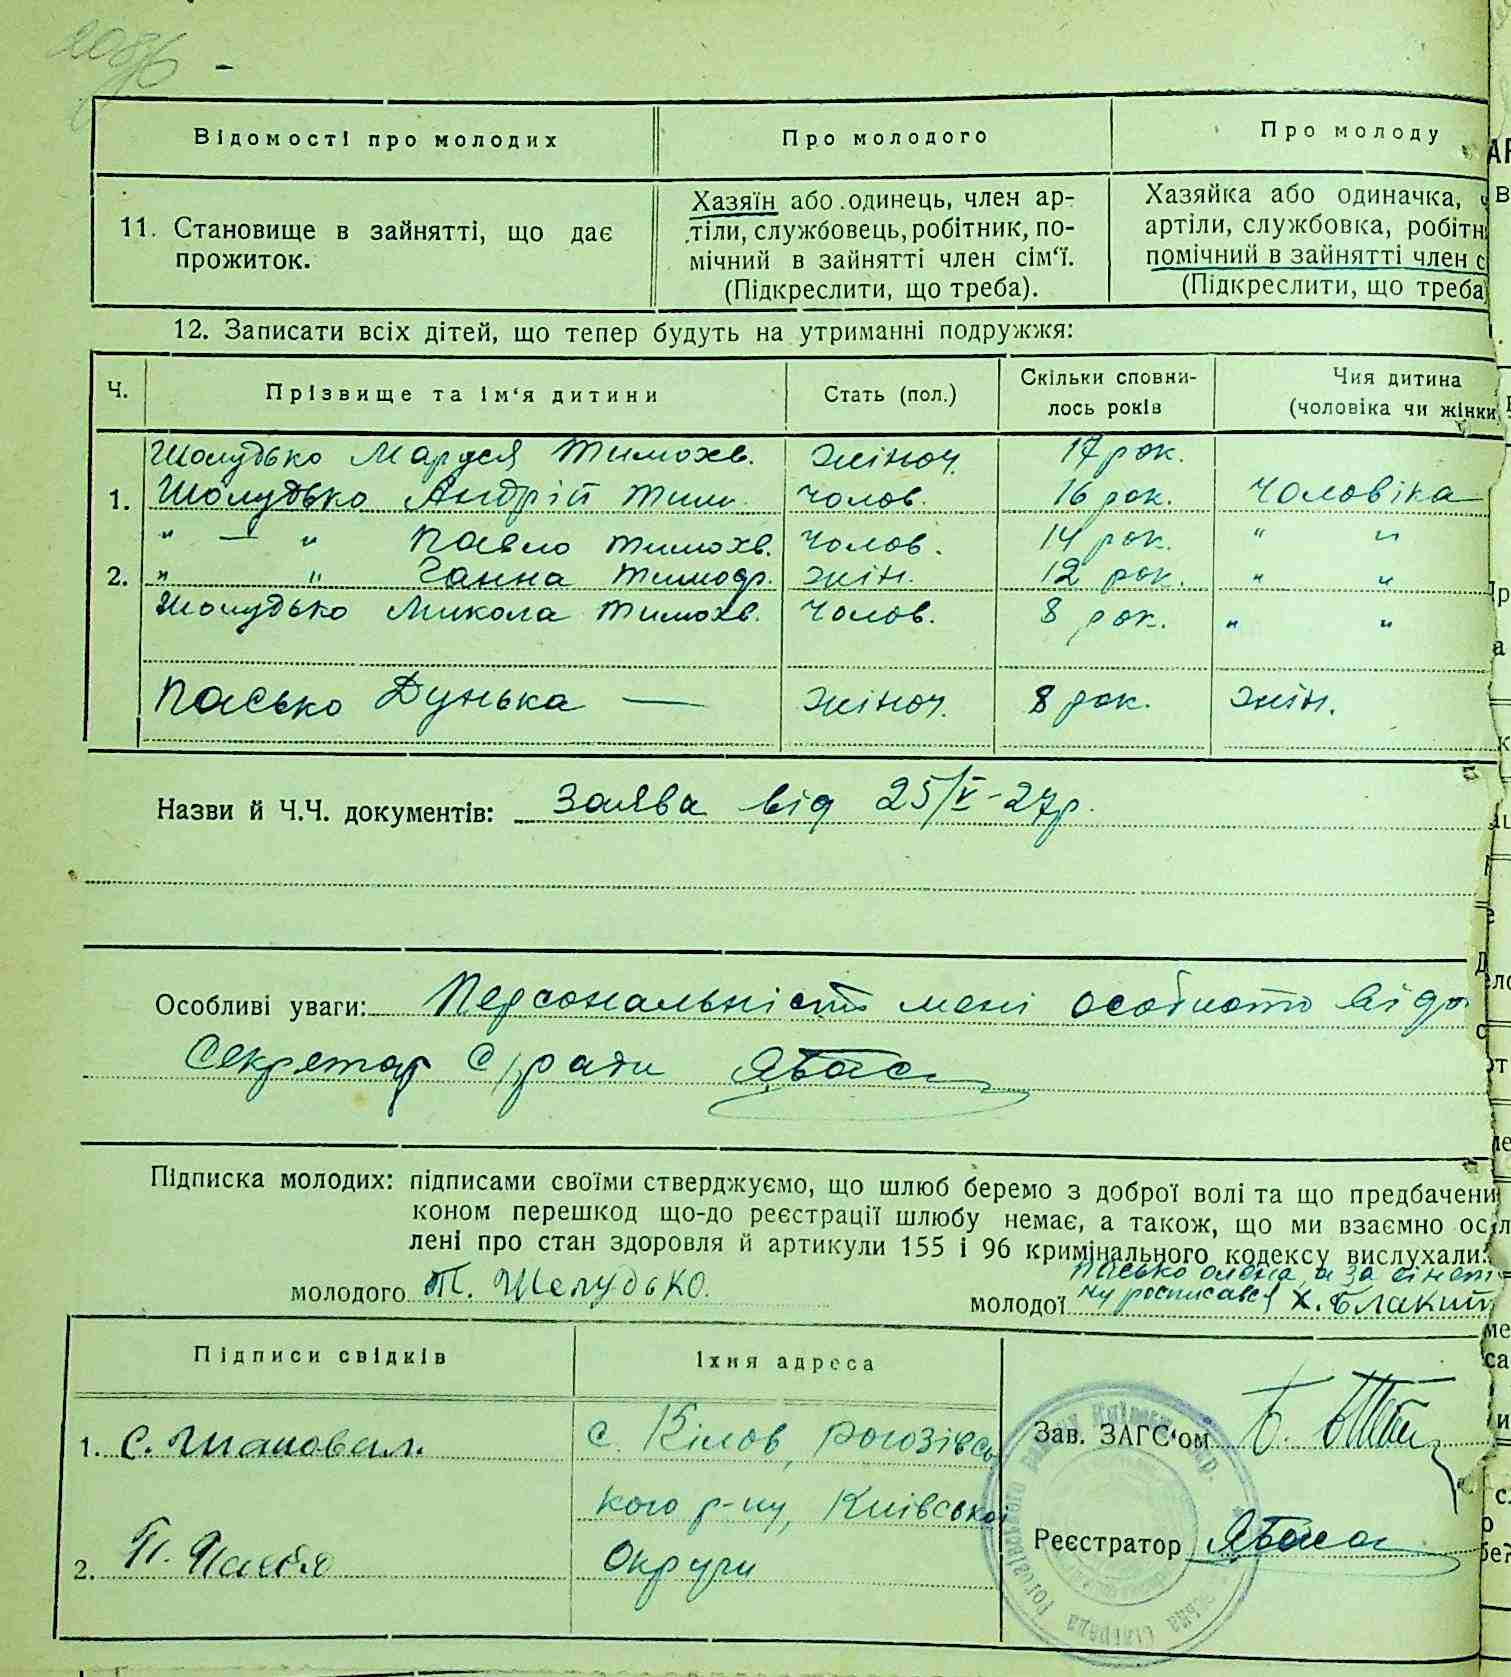 Відомості про молодих Про молодого Про молоду
11. Становище в зайнятті, що дає прожиток.
Хазяїн або одинець, член ар-
тіли, службовець, робітник, по-
мічний в зайнятті член сім'ї.
(Підкреслити, що треба).
Хазяйка або одиначка,
артіли, службовка, робітн
помічний в зайнятті член с
(Підкреслити, що треба
12. Записати всіх дітей, що тепер будуть на утриманні подружжя:
Ч. Прізвище та ім'я дитини Стать (пол.) Скільки сповни-лось років Чия дитина (чоловіка чи жінки
Шолудько Маруся Тимохв. жіноч. 17 рок.
1. Шолудько Андрій Тим. чолов. 16 рок. Чоловіка
" — " Павло Тимохв. чолов. 14 рок. " "
2. " " Ганна Тимофр. жін. 12 рок. " "
Шолудько Микола Тимохв. чолов. 8 рок. " "
Пасько Дунька — жіноч. 8 рок. жін.
Назви й Ч.Ч. документів: Заява від 25/V-27р.
Особливі уваги: Персональність мені особисто відо
Секретар с/ради
Підписка молодих: підписами своїми стверджуємо, що шлюб беремо з доброї волі та що предбачени
коном перешкод що-до реєстрації шлюбу немає, а також, що ми взаємно
лені про стан здоровля й артикули 155 і 96 кримінального кодексу вислухали.
молодого Т. Шелудько.
молодої Пасько Олена, а за
росписався Х. Блакит
Підписи свідків Їхня адреса
1. С. Шаповал.
2. П.
с. Кілов, Рогозівсь
кого р-ну, Київської
Округи
Зав. ЗАГС'ом
Реєстратор